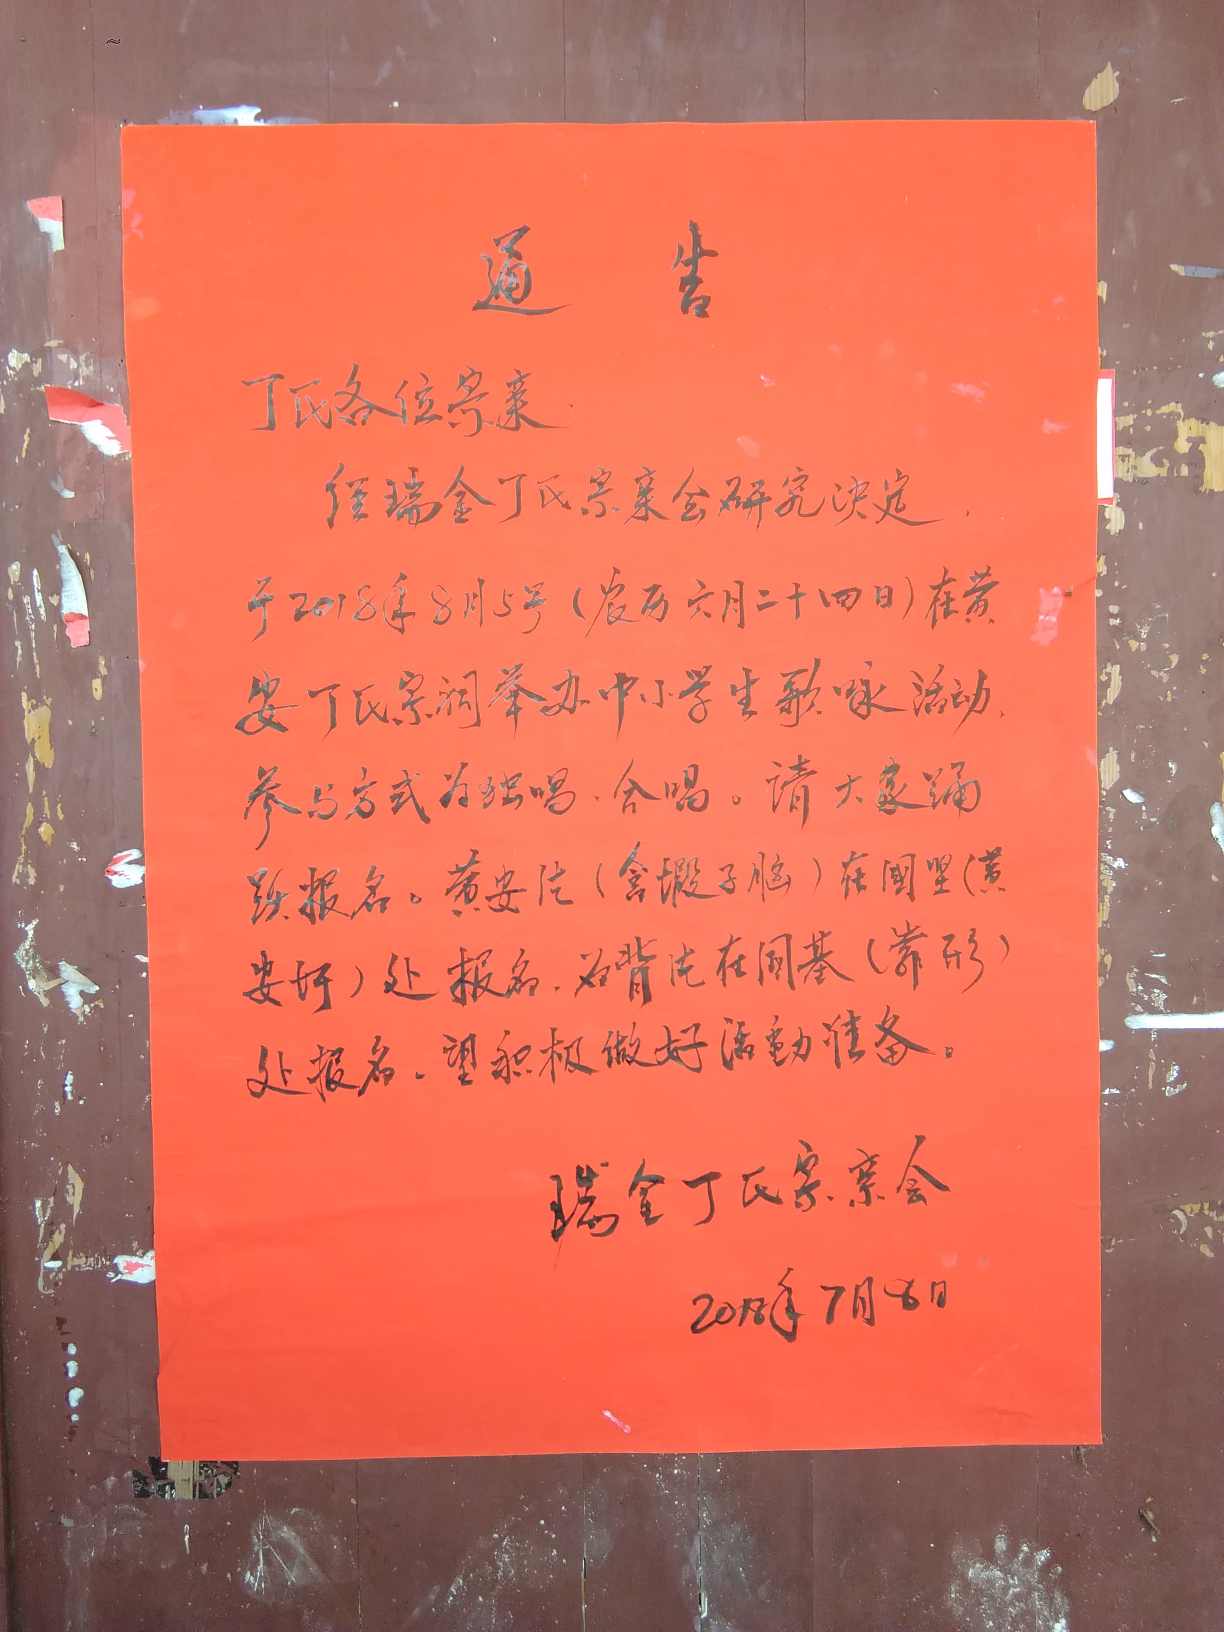 通 告
丁氏各位宗亲
经瑞金丁氏宗亲会研究决定，
于2018年8月5号（农历六月二十四日）在黄
安丁氏宗祠举办中小学生歌咏活动，
参与方式为独唱、合唱。请大家踊
跃报名。黄安片（含塅子脑）在国坚（黄
安圩）处报名，背片在国基（靠形）
处报名。望积极做好活動准备。
瑞金丁氏宗亲会
2018年7月8日